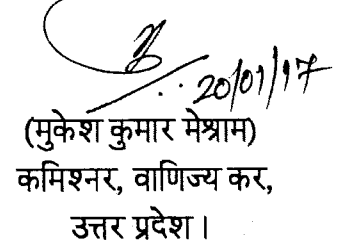 20/01/17
(मुकेश कुमार मेश्राम)
कमिश्नर, वाणिज्य कर,
उत्तर प्रदेश।